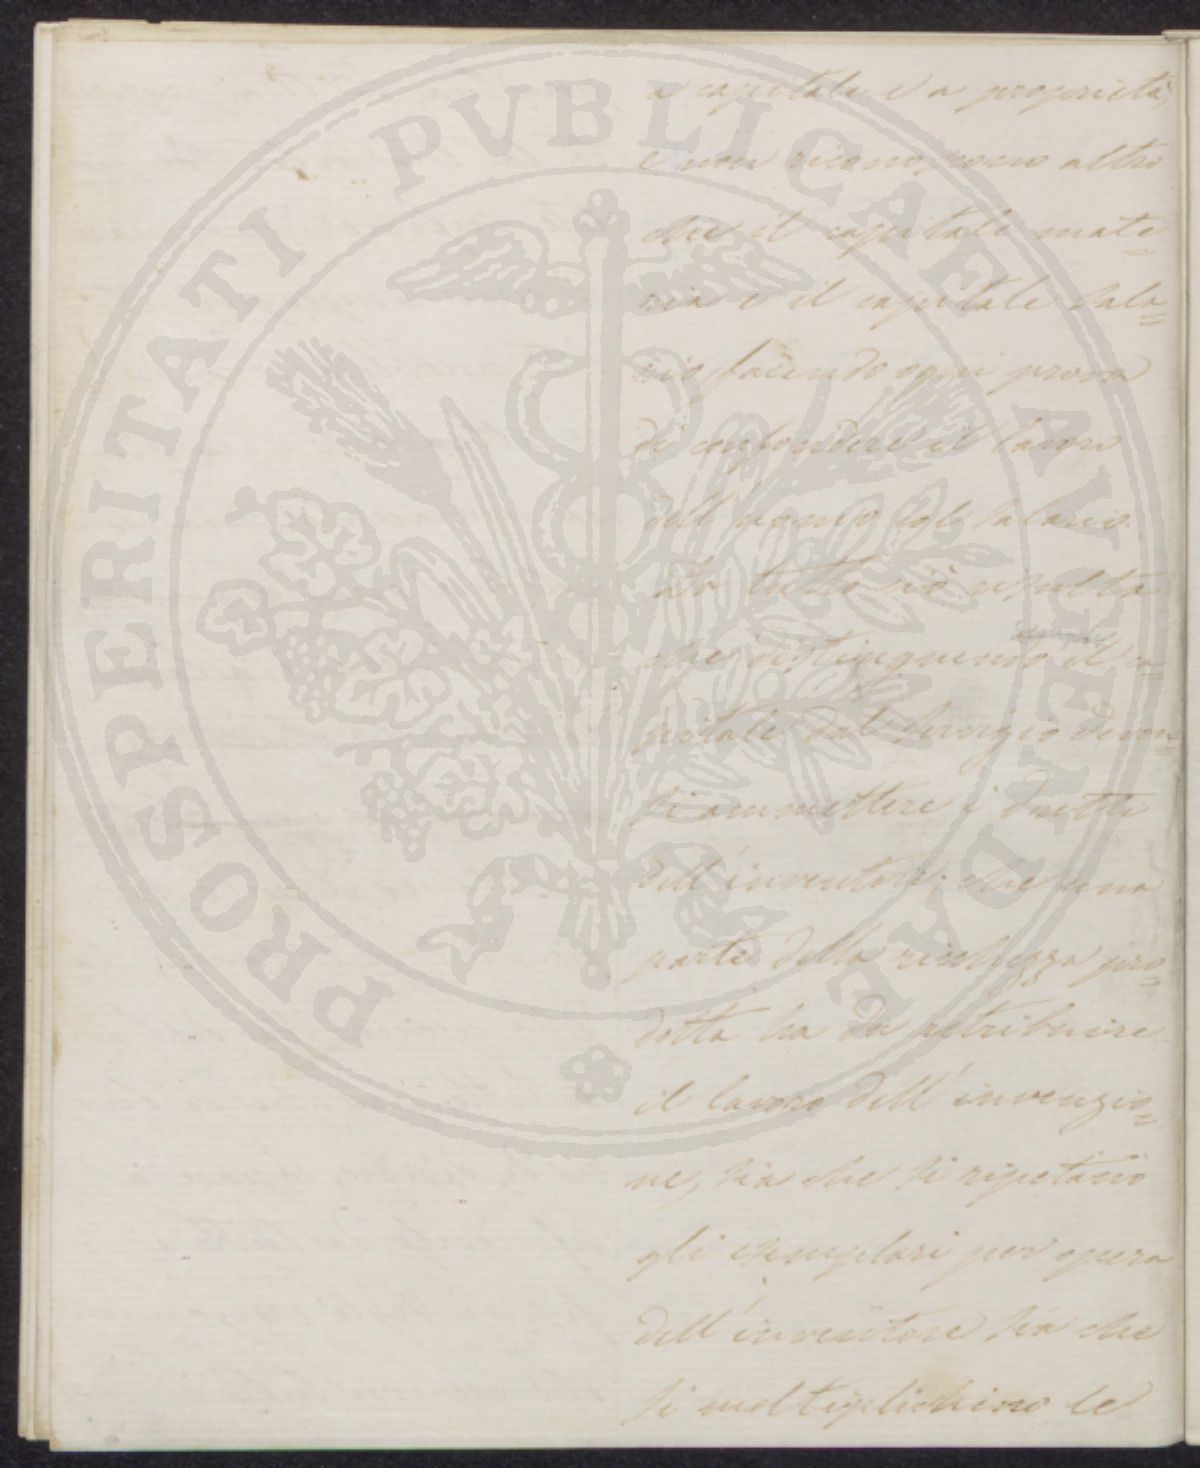 PROSPERITATI PVBLICAE AVGENDAE
a capitale e a proprietà,
e non riconoscono altro
che il capitale mate=
ria e il capitale sala=
rio facendo ogni prova
di confondere il lavoro
dell'uomo col salario.
Da tutto ciò risulta
che distinguendo il ca=
pitale dal servizio devon=
si ammettere i diritti
dell'inventore; che una
parte della ricchezza pro=
dotta ha da retribuire
il lavoro dell'invenzio=
ne, sia che si ripetano
gli esemplari per opera
dell'inventore sia che
si moltiplichino le